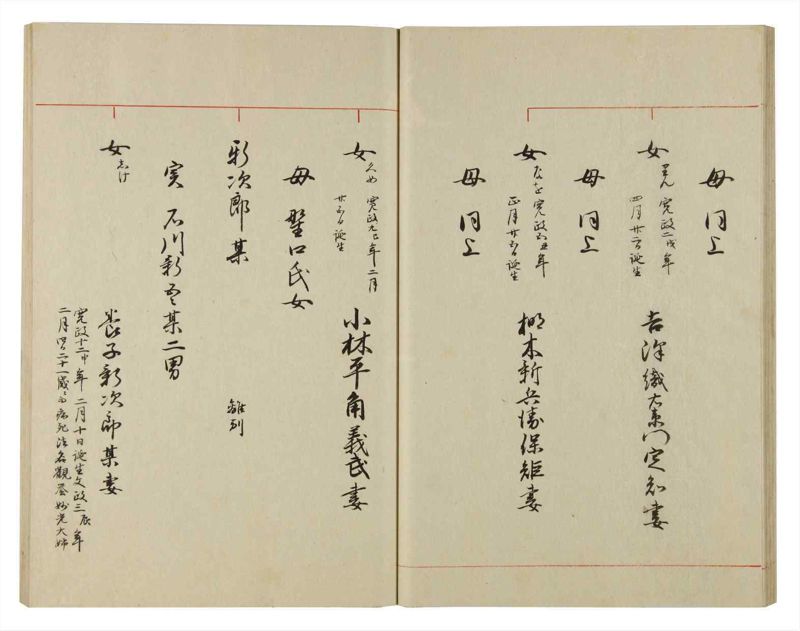 母 同上
女
寛政二戌年
四月廿二日誕生
吉沢織右衛門定知妻
母 同上
女
寛政五丑年
正月廿五日誕生
梛木新兵衛保矩妻
母 同上
女
くめ 寛政九巳年二月
廿五日誕生
小林平角義武妻
母 野口氏女
新次郎 某
離別
実 石川新吾某二男
女
志け
養子新次郎某妻
寛政十二申年二月十日誕生文政三辰年
二月四日二十一歳ニ而病死法名観室妙光大姉